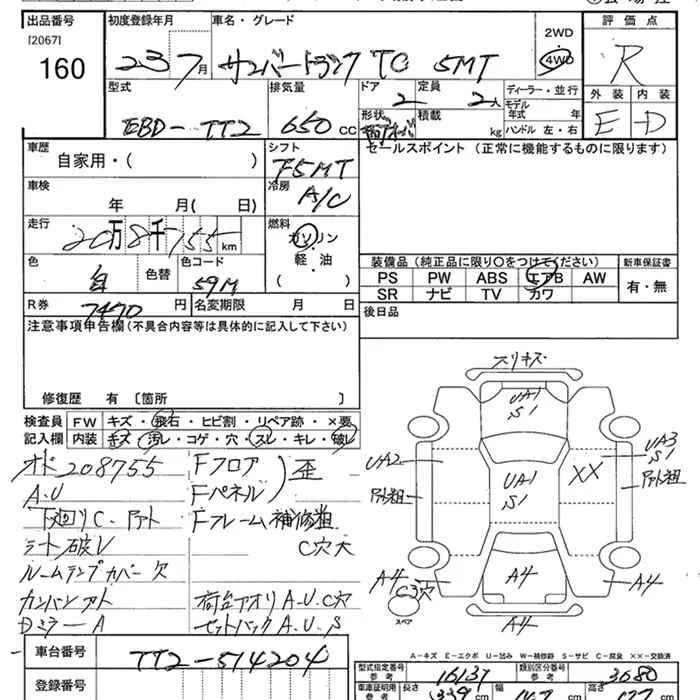 出品番号 初度登録年月 車名・グレード 2WD 評価点
[2067]
160 23 7月 サンバートラック TC 5MT 4WD R
型式 排気量 ドア 定員 ディーラー・並行 外装 内装
2 2人 モデル年式 年
EBD-TT2 650 CC 形状 積載 kg ハンドル 左・右 E D
車歴 シフト セールスポイント (正常に機能するものに限ります)
自家用・( ) F5MT
車検 冷房
年 月( 日) A/C
走行 燃料
20万8千755km ガソリン
色 色替 色コード 軽・油 装備品 (純正品に限り○をつけてください) 新車保証書
白 59M ( ) PS PW ABS エアB AW 有・無
SR ナビ TV カワ
R券 7470円 名変期限 月 日 後日品
注意事項申告欄(不具合内容等は具体的に記入して下さい)
修復歴 有 〔箇所
検査員記入欄 FW キズ・飛石・ヒビ割・リペア跡・×要
内装 キズ・汚レ・コゲ・穴・スレ・キレ・破レ
オド208755 Fフロア
A.U Fパネル 歪
下廻りC.アト Fフレーム補修粗
シート破レ C穴大
ルームランプカバー欠
カンバンアト 荷台アオリA.U.C穴
DミラーA セットバックA.U.S
スリキズ
UA1
S1
UA2 UA1 S1 XX UA3 S1
アト粗 アト粗
A4 C3穴 A4 A4
スペア A4
A-キズ E-エクボ U-凹み W-補修跡 S-サビ C-腐食 XX-交換済
車台番号 TT2-514204
型式指定番号 参考 16137 類別区分番号 参考 3680
登録番号
車車証明用 参考 長さ 339 cm 幅 147 cm 高さ cm